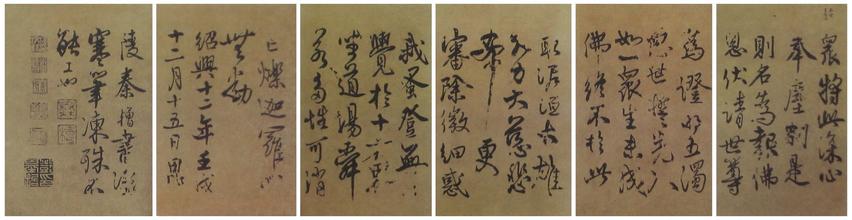 衆將此深心
奉塵刹是
則名為報佛
恩伏請世尊
為證明五濁
惡世誓先入
如一衆生未成
佛終不於此
取泥洹大雄
大力大慈悲
希更
審除微細惑
我蚤登無上
覺於十方界
坐道場舜
若多性可消
亡爍迦羅心
無動
紹興十二年壬戌
十二月十五日
陵秦僧書
寒筆凍殊不
能工也